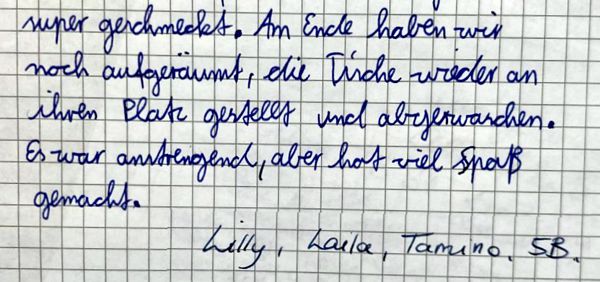 super geschmeckt. Am Ende haben wir
noch aufgeräumt, die Tische wieder an
ihren Platz gestellt und abgewaschen.
Es war anstrengend, aber hat viel Spaß
gemacht.
Lilly, Laila, Tamino. 5B.